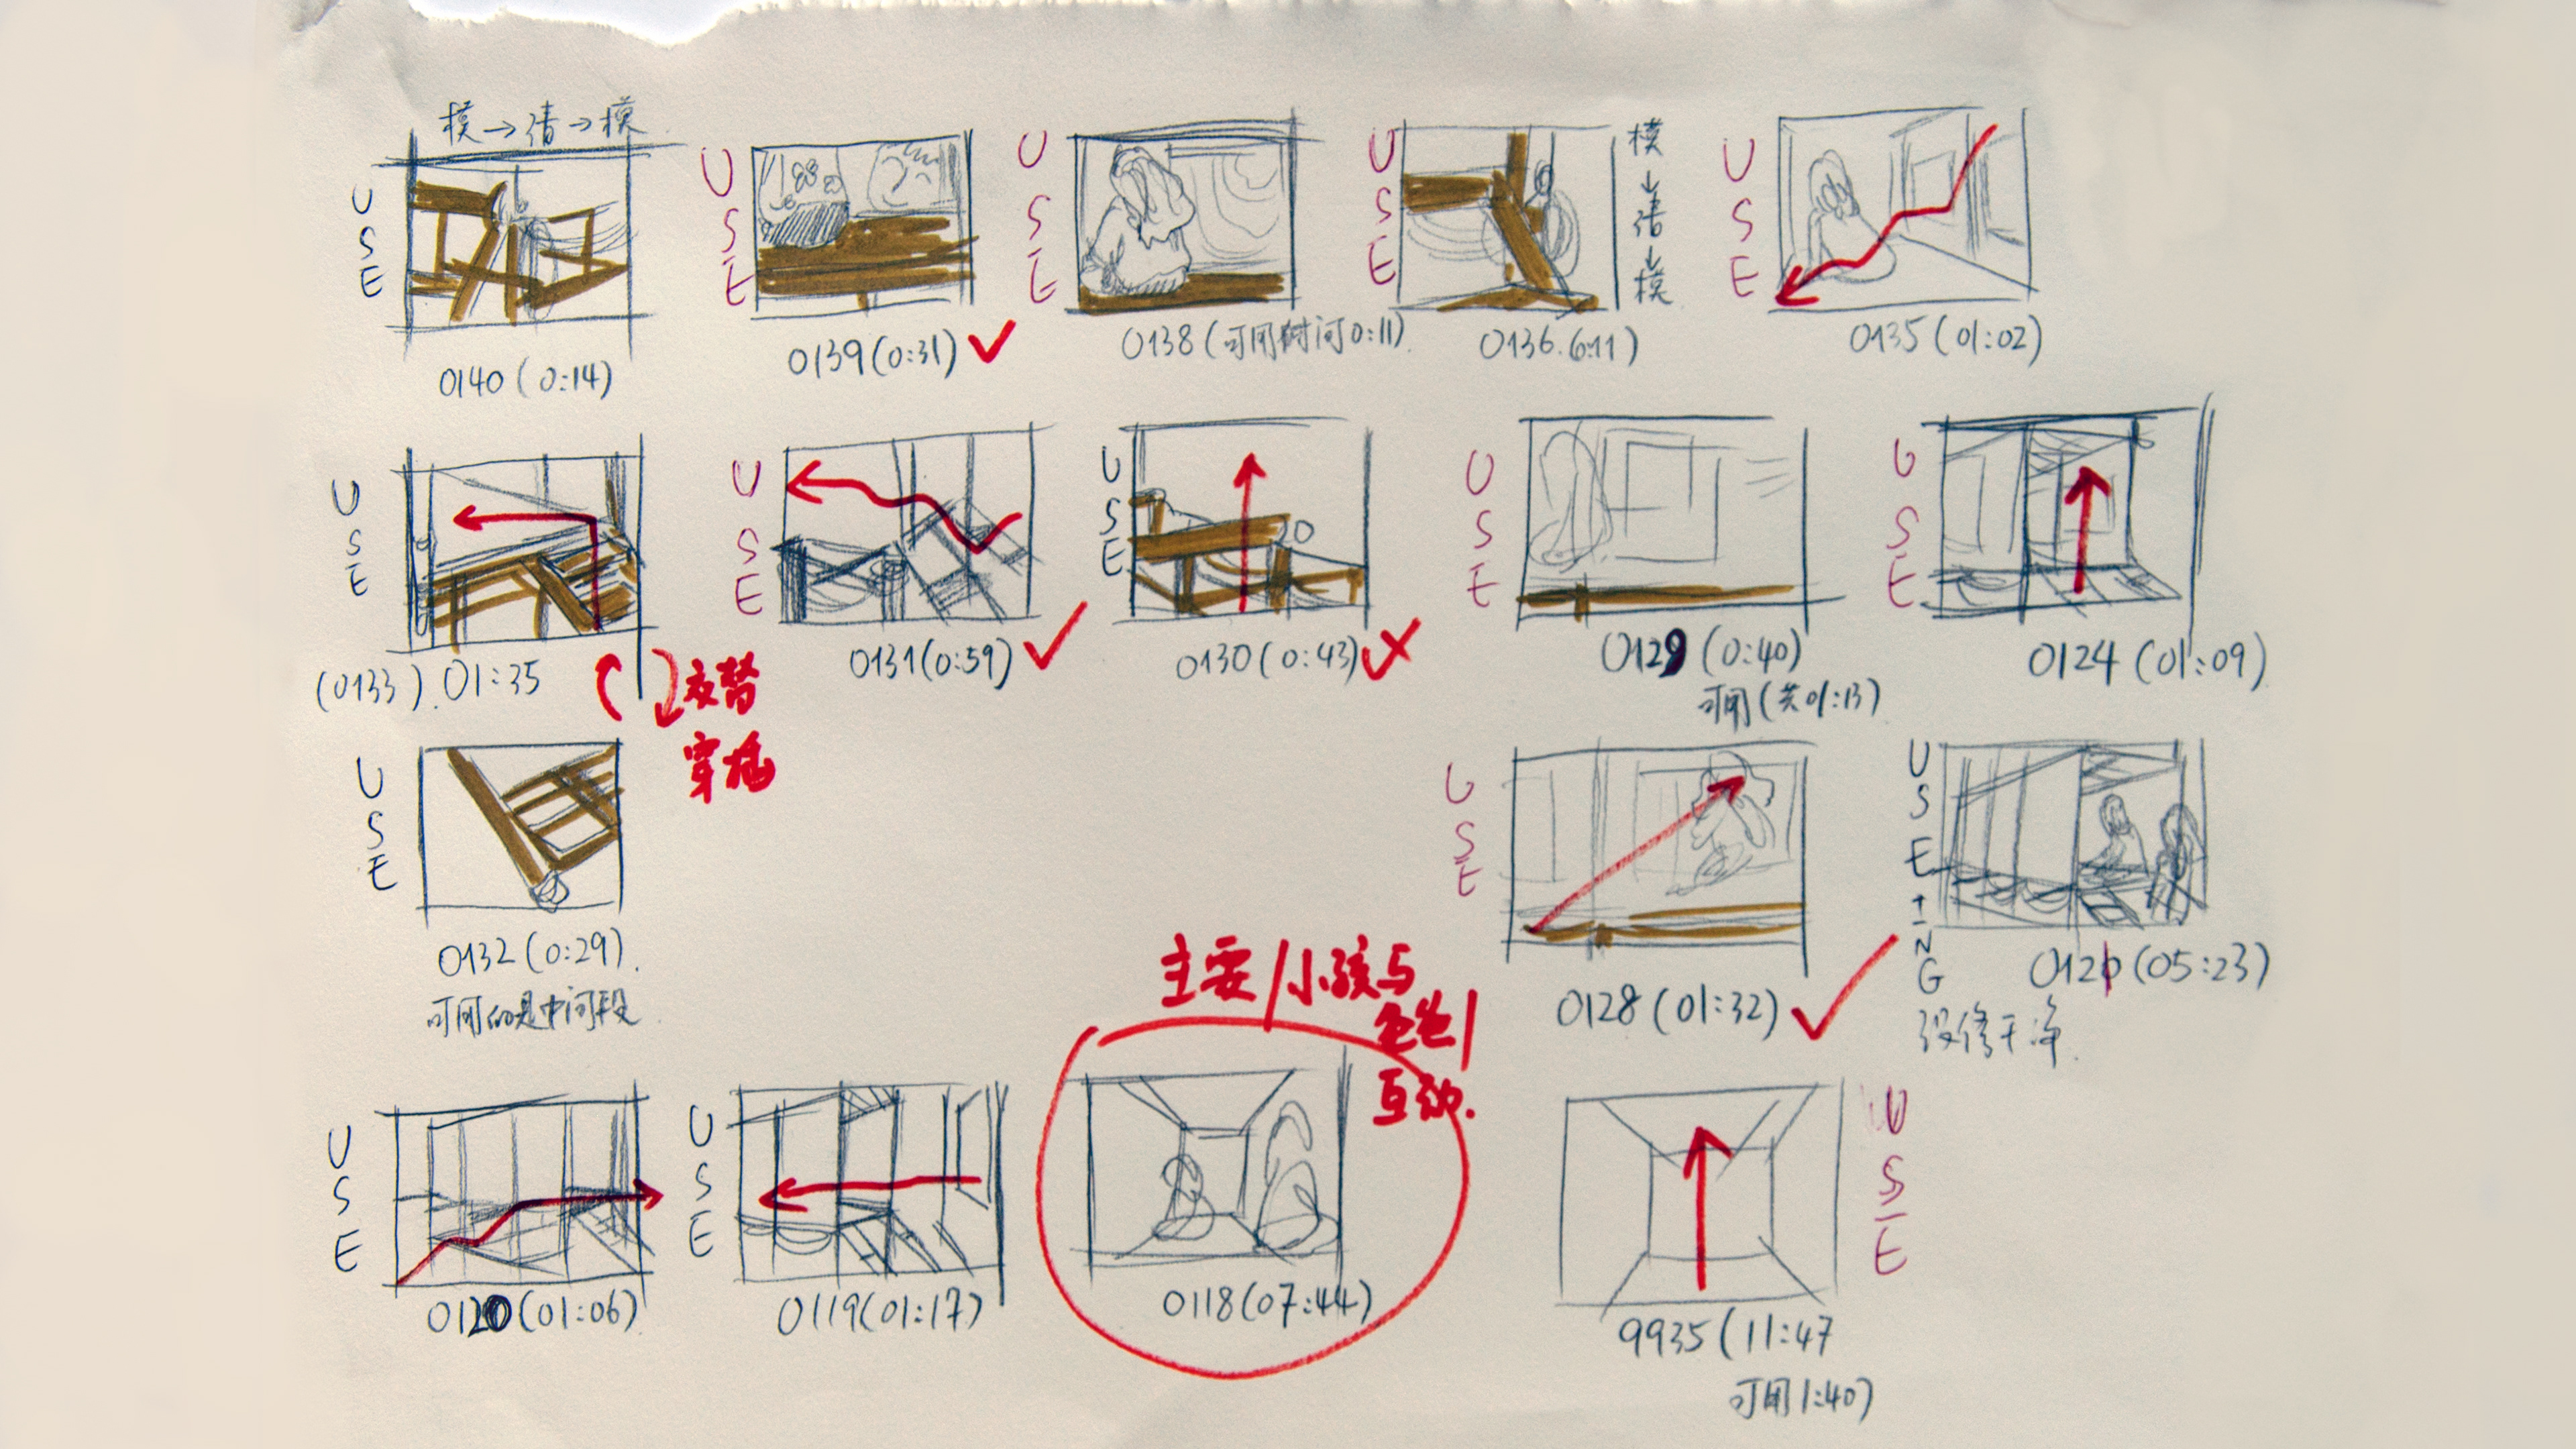 模→清→模
USE
0140 (0:14)
USE
0139 (0:31) ✓
USE
0138 (可用时间0:11)
USE
模↓清↓模
0136 (0:11)
USE
0135 (01:02)
USE
(0133). 01:35
交替
穿插
USE
0131 (0:59) ✓
USE
0130 (0:43)
USE
0129 (0:40)
可用 (共01:13)
USE
0124 (01:09)
USE
0132 (0:29).
可用的是中间段
USE
0128 (01:32) ✓
USEING
0121 (05:23)
没修干净.
USE
0120 (01:06)
USE
0119 (01:17)
主要/小孩与
爸爸/
互动.
0118 (07:44)
USE
9935 (11:47
可用1:40)